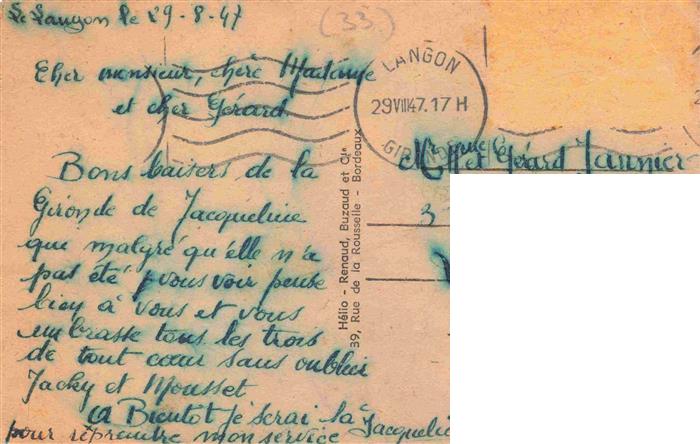 Langon le 29-8-47
(33)
Cher monsieur, chère Madame
et cher Gérard
LANGON
29 VIII 47.17 H
GIRONDE
Mr Mme et Gérard Jannier
3
Bons baisers de la
Gironde de Jacqueline
qui malgré qu'elle n'a
pas été vous voir pense
bien à vous et vous
embrasse tous les trois
de tout cœur sans oublier
Jacky et Mousset
A Bientot je serai la Jacqueline
pour reprendre mon service
Hélio - Renaud, Buzaud et Cie
39, Rue de la Rousselle - Bordeaux